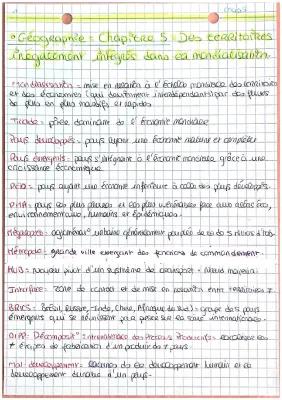 Géographie : Chapitre 5 : Des territoires
inégalement intégrés dans la mondialisation.
Mondialisation = mise en relation à l'échelle mondiale des territoires
et des économies (qui deviennent interdépendants) par des flux
de plus en plus massifs et rapides
Triade = pôle dominant de l'économie mondiale
Pays développés = pays ayant une économie mature et complète
Pays émergents = pays s'intégrant à l'économie mondiale grâce à une
croissance économique.
pays ayant une économie inférieure à celle des pays développés.
PMA = pays les plus pauvres et les plus vulnérables face aux aléas éco,
environnementaux, humains et épidémiques.
Mégalopole = urbaine généralement peuplée de
Métropole = grande ville exerçant des fonctions de commandement.
HUB = noeud pivot d'un système de transport
Interface = zone de contact et de mise en relation entre territoires
BRICS = Brésil, Russie, Inde, Chine, Afrique du Sud = groupe de 5 pays
émergents qui se réunissent pour peser sur la scène internationale.
DIPP = Internationale des Processus Productifs
étapes de fabrication d'un produit de pays
Mal développement = du développement humain et
développement durable d'un pays